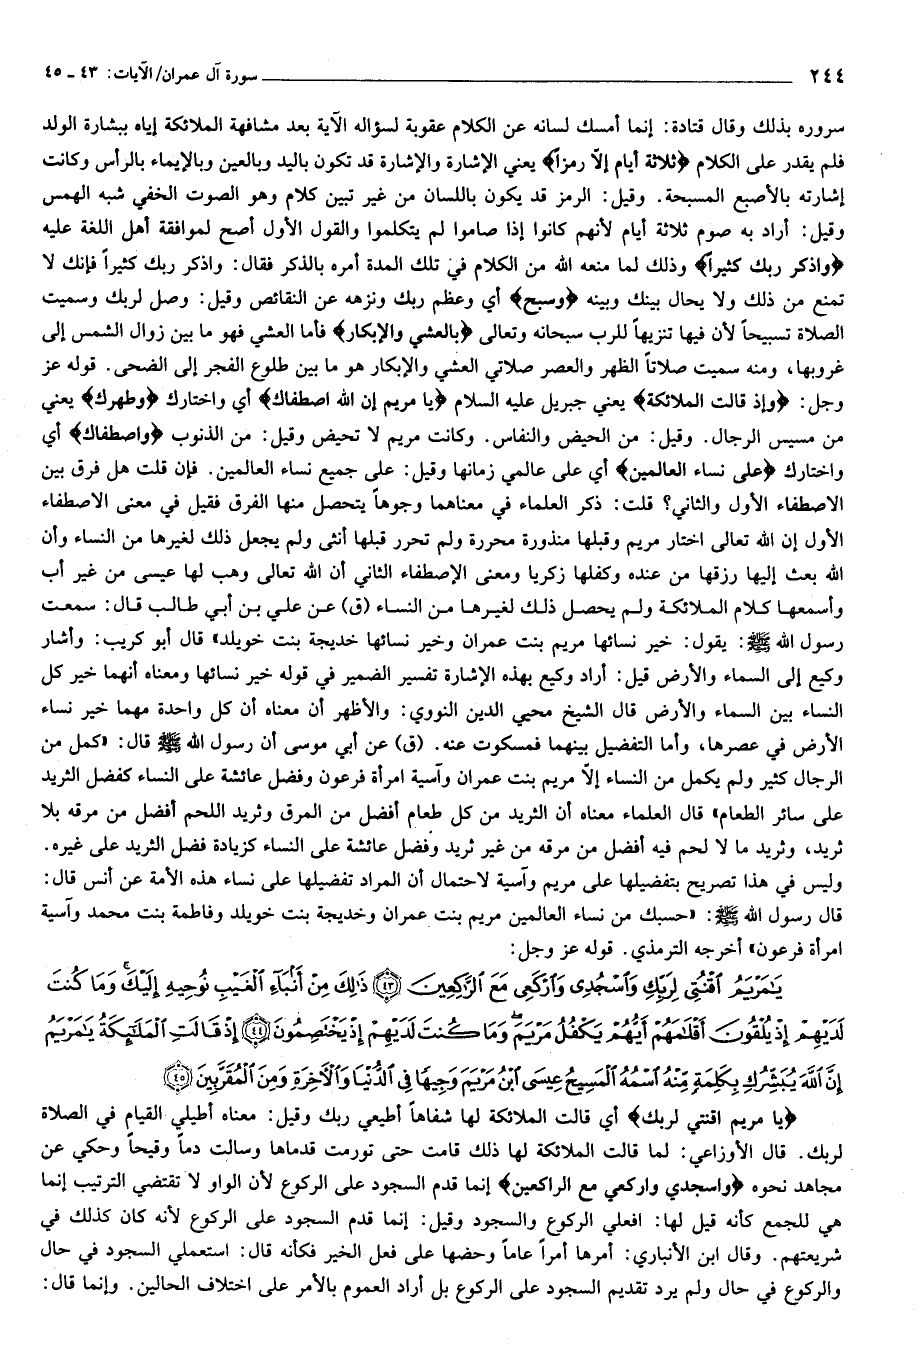 ٢٤٤ سورة آل عمران/ الآيات: ٤٣ - ٤٥
سروره بذلك وقال قتادة: إنما أمسك لسانه عن الكلام عقوبة لسؤاله الآية بعد مشافهة الملائكة إياه ببشارة الولد
فلم يقدر على الكلام ﴿ثلاثة أيام إلّا رمزاً﴾ يعني الإشارة والإشارة قد تكون باليد وبالعين وبالإيماء بالرأس وكانت
إشارته بالأصبع المسبحة. وقيل: الرمز قد يكون باللسان من غير تبين كلام وهو الصوت الخفي شبه الهمس
وقيل: أراد به صوم ثلاثة أيام لأنهم كانوا إذا صاموا لم يتكلموا والقول الأول أصح لموافقة أهل اللغة عليه
﴿واذكر ربك كثيراً﴾ وذلك لما منعه الله من الكلام في تلك المدة أمره بالذكر فقال: واذكر ربك كثيراً فإنك لا
تمنع من ذلك ولا يحال بينك وبينه ﴿وسبح﴾ أي وعظم ربك ونزهه عن النقائص وقيل: وصل لربك وسميت
الصلاة تسبيحاً لأن فيها تنزيهاً للرب سبحانه وتعالى ﴿بالعشي والإبكار﴾ فأما العشي فهو ما بين زوال الشمس إلى
غروبها، ومنه سميت صلاتاً الظهر والعصر صلاتي العشي والإبكار هو ما بين طلوع الفجر إلى الضحى. قوله عز
وجل: ﴿وإذ قالت الملائكة﴾ يعني جبريل عليه السلام ﴿يا مريم إن الله اصطفاك﴾ أي واختارك ﴿وطهرك﴾ يعني
من مسيس الرجال. وقيل: من الحيض والنفاس. وكانت مريم لا تحيض وقيل: من الذنوب ﴿واصطفاك﴾ أي
واختارك ﴿على نساء العالمين﴾ أي على عالمي زمانها وقيل: على جميع نساء العالمين. فإن قلت هل فرق بين
الاصطفاء الأول والثاني؟ قلت: ذكر العلماء في معناهما وجوهاً يتحصل منها الفرق فقيل في معنى الاصطفاء
الأول إن الله تعالى اختار مريم وقبلها منذورة محررة ولم تحرر قبلها أنثى ولم يجعل ذلك لغيرها من النساء وأن
الله بعث إليها رزقها من عنده وكفلها زكريا ومعنى الإصطفاء الثاني أن الله تعالى وهب لها عيسى من غير أب
وأسمعها كلام الملائكة ولم يحصل ذلك لغيرها من النساء (ق) عن علي بن أبي طالب قال: سمعت
رسول الله ﷺ: يقول: خير نسائها مريم بنت عمران وخير نسائها خديجة بنت خويلد» قال أبو كريب: وأشار
وكيع إلى السماء والأرض قيل: أراد وكيع بهذه الإشارة تفسير الضمير في قوله خير نسائها ومعناه أنهما خير كل
النساء بين السماء والأرض قال الشيخ محيي الدين النووي: والأظهر أن معناه أن كل واحدة مهما خير نساء
الأرض في عصرها، وأما التفضيل بينهما فمسكوت عنه. (ق) عن أبي موسى أن رسول الله ﷺ قال: «كمل من
الرجال كثير ولم يكمل من النساء إلّا مريم بنت عمران وآسية امرأة فرعون وفضل عائشة على النساء كفضل الثريد
على سائر الطعام» قال العلماء معناه أن الثريد من كل طعام أفضل من المرق وثريد اللحم أفضل من مرقه بلا
ثريد، وثريد ما لا لحم فيه أفضل من مرقه من غير ثريد وفضل عائشة على النساء كزيادة فضل الثريد على غيره.
وليس في هذا تصريح بتفضيلها على مريم وآسية لاحتمال أن المراد تفضيلها على نساء هذه الأمة عن أنس قال:
قال رسول الله ﷺ: «حسبك من نساء العالمين مريم بنت عمران وخديجة بنت خويلد وفاطمة بنت محمد وآسية
امرأة فرعون» أخرجه الترمذي. قوله عز وجل:
يَٰمَرْيَمُ ٱقْنُتِى لِرَبِّكِ وَٱسْجُدِى وَٱرْكَعِى مَعَ ٱلرَّٰكِعِينَ ﴿٤٣﴾ ذَٰلِكَ مِنْ أَنۢبَآءِ ٱلْغَيْبِ نُوحِيهِ إِلَيْكَ ۚ وَمَا كُنتَ
لَدَيْهِمْ إِذْ يُلْقُونَ أَقْلَٰمَهُمْ أَيُّهُمْ يَكْفُلُ مَرْيَمَ وَمَا كُنتَ لَدَيْهِمْ إِذْ يَخْتَصِمُونَ ﴿٤٤﴾ إِذْ قَالَتِ ٱلْمَلَٰٓئِكَةُ يَٰمَرْيَمُ
إِنَّ ٱللَّهَ يُبَشِّرُكِ بِكَلِمَةٍ مِّنْهُ ٱسْمُهُ ٱلْمَسِيحُ عِيسَى ٱبْنُ مَرْيَمَ وَجِيهًا فِى ٱلدُّنْيَا وَٱلْءَاخِرَةِ وَمِنَ ٱلْمُقَرَّبِينَ ﴿٤٥﴾
﴿يا مريم اقنتي لربك﴾ أي قالت الملائكة لها شفاهاً أطيعي ربك وقيل: معناه أطيلي القيام في الصلاة
لربك. قال الأوزاعي: لما قالت الملائكة لها ذلك قامت حتى تورمت قدماها وسالت دماً وقيحاً وحكي عن
مجاهد نحوه ﴿واسجدي واركعي مع الراكعين﴾ إنما قدم السجود على الركوع لأن الواو لا تقتضي الترتيب إنما
هي للجمع كأنه قيل لها: افعلي الركوع والسجود وقيل: إنما قدم السجود على الركوع لأنه كان كذلك في
شريعتهم. وقال ابن الأنباري: أمرها أمراً عاماً وحضها على فعل الخير فكأنه قال: استعملي السجود في حال
والركوع في حال ولم يرد تقديم السجود على الركوع بل أراد العموم بالأمر على اختلاف الحالين. وإنما قال: